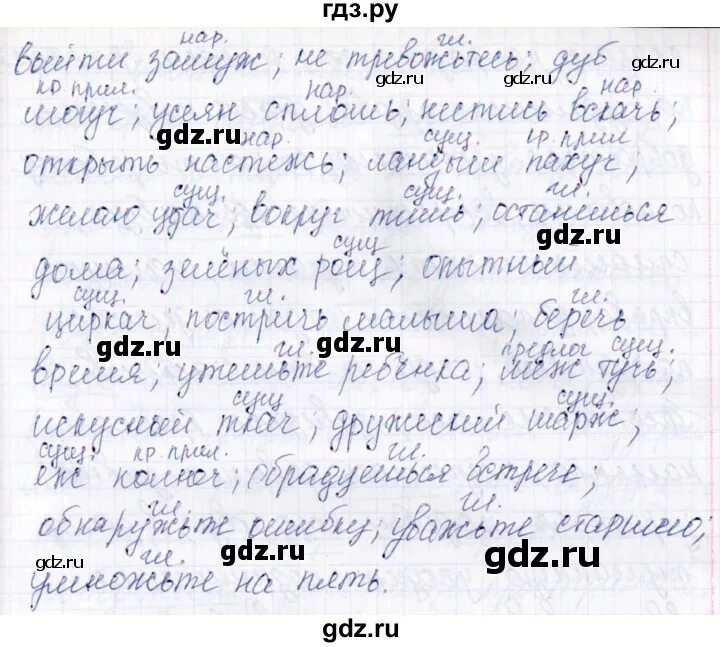 гдз.ру
нар. гл.
выйти замуж; не тревожьтесь; дуб
gdz.ru gdz.ru
кр. прил. нар. нар.
могуч; усеян сплошь; нестись вскачь;
gdz.ru нар. сущ. кр. прил
открыть настежь; ландыш пахуч;
сущ. сущ. гл.
желаю удач; вокруг тишь; останешься
gdz.ru
сущ
дома; зелёных рощ; опытный
сущ. гл. гл.
циркач; постричь малыша; беречь
gdz.ru gdz.ru
гл. предлог сущ.
время; утешьте ребёнка; меж туч;
сущ сущ.
искусный ткач; дружеский шарж;
сущ. кр. прил. гл.
ёж колюч; обрадуешься встрече;
gdz.ru gdz.ru
гл. гл.
обнаружьте ошибку; уважьте старшего;
gdz.ru гл. gdz.ru gdz.ru
умножьте на пять.
gdz.ru